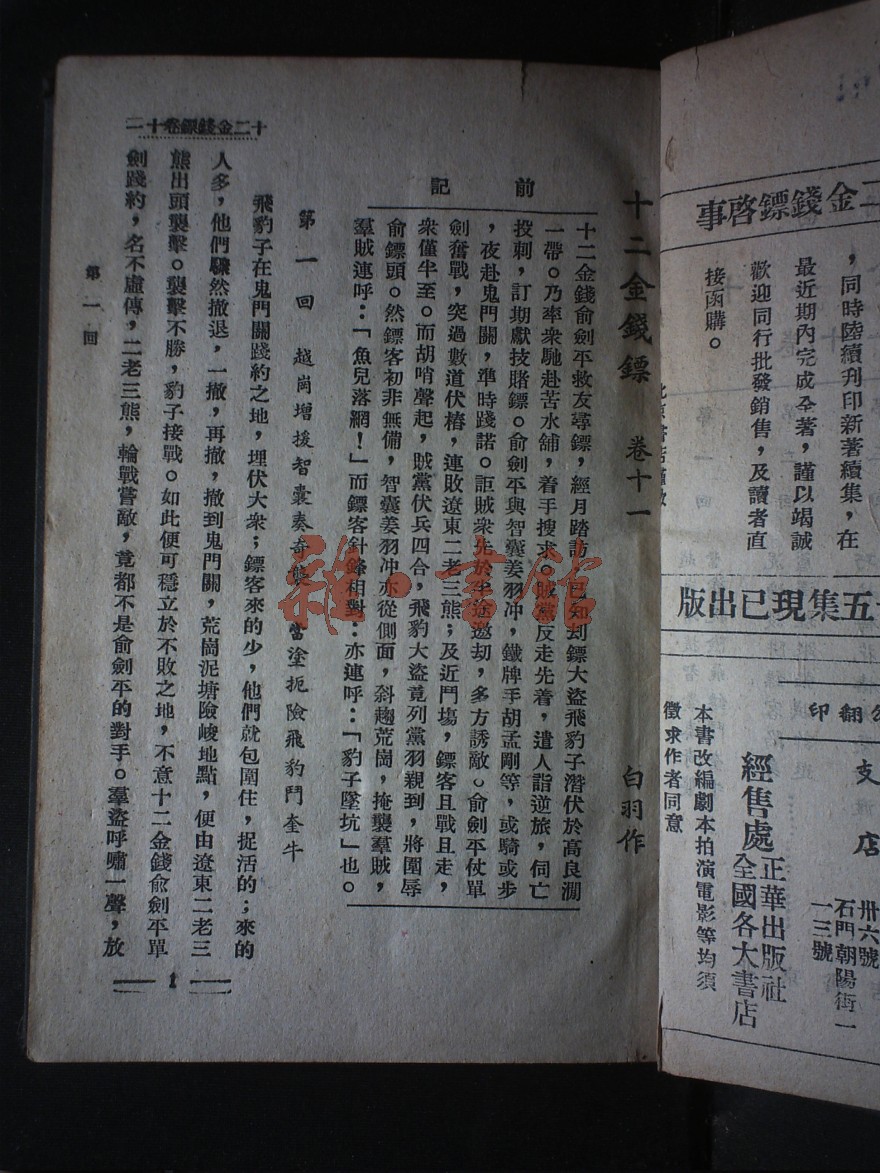 金錢鏢啓事
，同時陸續刊印新著續集，在
最近期內完成全著，謹以竭誠
歡迎同行批發銷售，及讀者直
接函購。
五集現已出版
翻印
支
店
卅六號
石門朝陽街一
一三號
經售處
正華出版社
全國各大書店
本書改編劇本拍演電影等均須
徵求作者同意
十二金錢鏢 卷十一 白羽作
前記
十二金錢俞劍平救友尋鏢，經月踏訪，已知刦鏢大盜飛豹子潛伏於高良澗
一帶。乃率衆馳赴苦水舖，着手搜求。賊黨反走先着，遣人詣逆旅，伺亡
投刺，訂期獻技賭鏢。俞劍平與智囊姜羽冲，鐵牌手胡孟剛等，或騎或步
，夜赴鬼門關，準時踐諾。詎賊衆先於半途邀劫，多方誘敵。俞劍平仗單
劍奮戰，突過數道伏樁，連敗遼東二老三熊；及近鬥塲，鏢客且戰且走，
衆僅半至。而胡哨聲起，賊黨伏兵四合，飛豹大盜竟列黨羽親到，將圍辱
俞鏢頭。然鏢客初非無備，智囊姜羽冲亦從側面，斜趨荒崗，掩襲羣賊，
羣賊連呼：「魚兒落網！」而鏢客針鋒相對：亦連呼：「豹子墜坑」也。
第一回 越崗增援智囊奏奇襲 當塗扼險飛豹鬥奎牛
飛豹子在鬼門關踐約之地，埋伏大衆；鏢客來的少，他們就包圍住，捉活的；來的
人多，他們驟然撤退，一撤，再撤，撤到鬼門關，荒崗泥塘險峻地點，便由遼東二老三
熊出頭襲擊。襲擊不勝，豹子接戰。如此便可穩立於不敗之地，不意十二金錢俞劍平單
劍踐約，名不虛傳，二老三熊，輪戰嘗敵，竟都不是俞劍平的對手。羣盜呼嘯一聲，放
十二金錢鏢卷十一
第一回
1
雜·書館